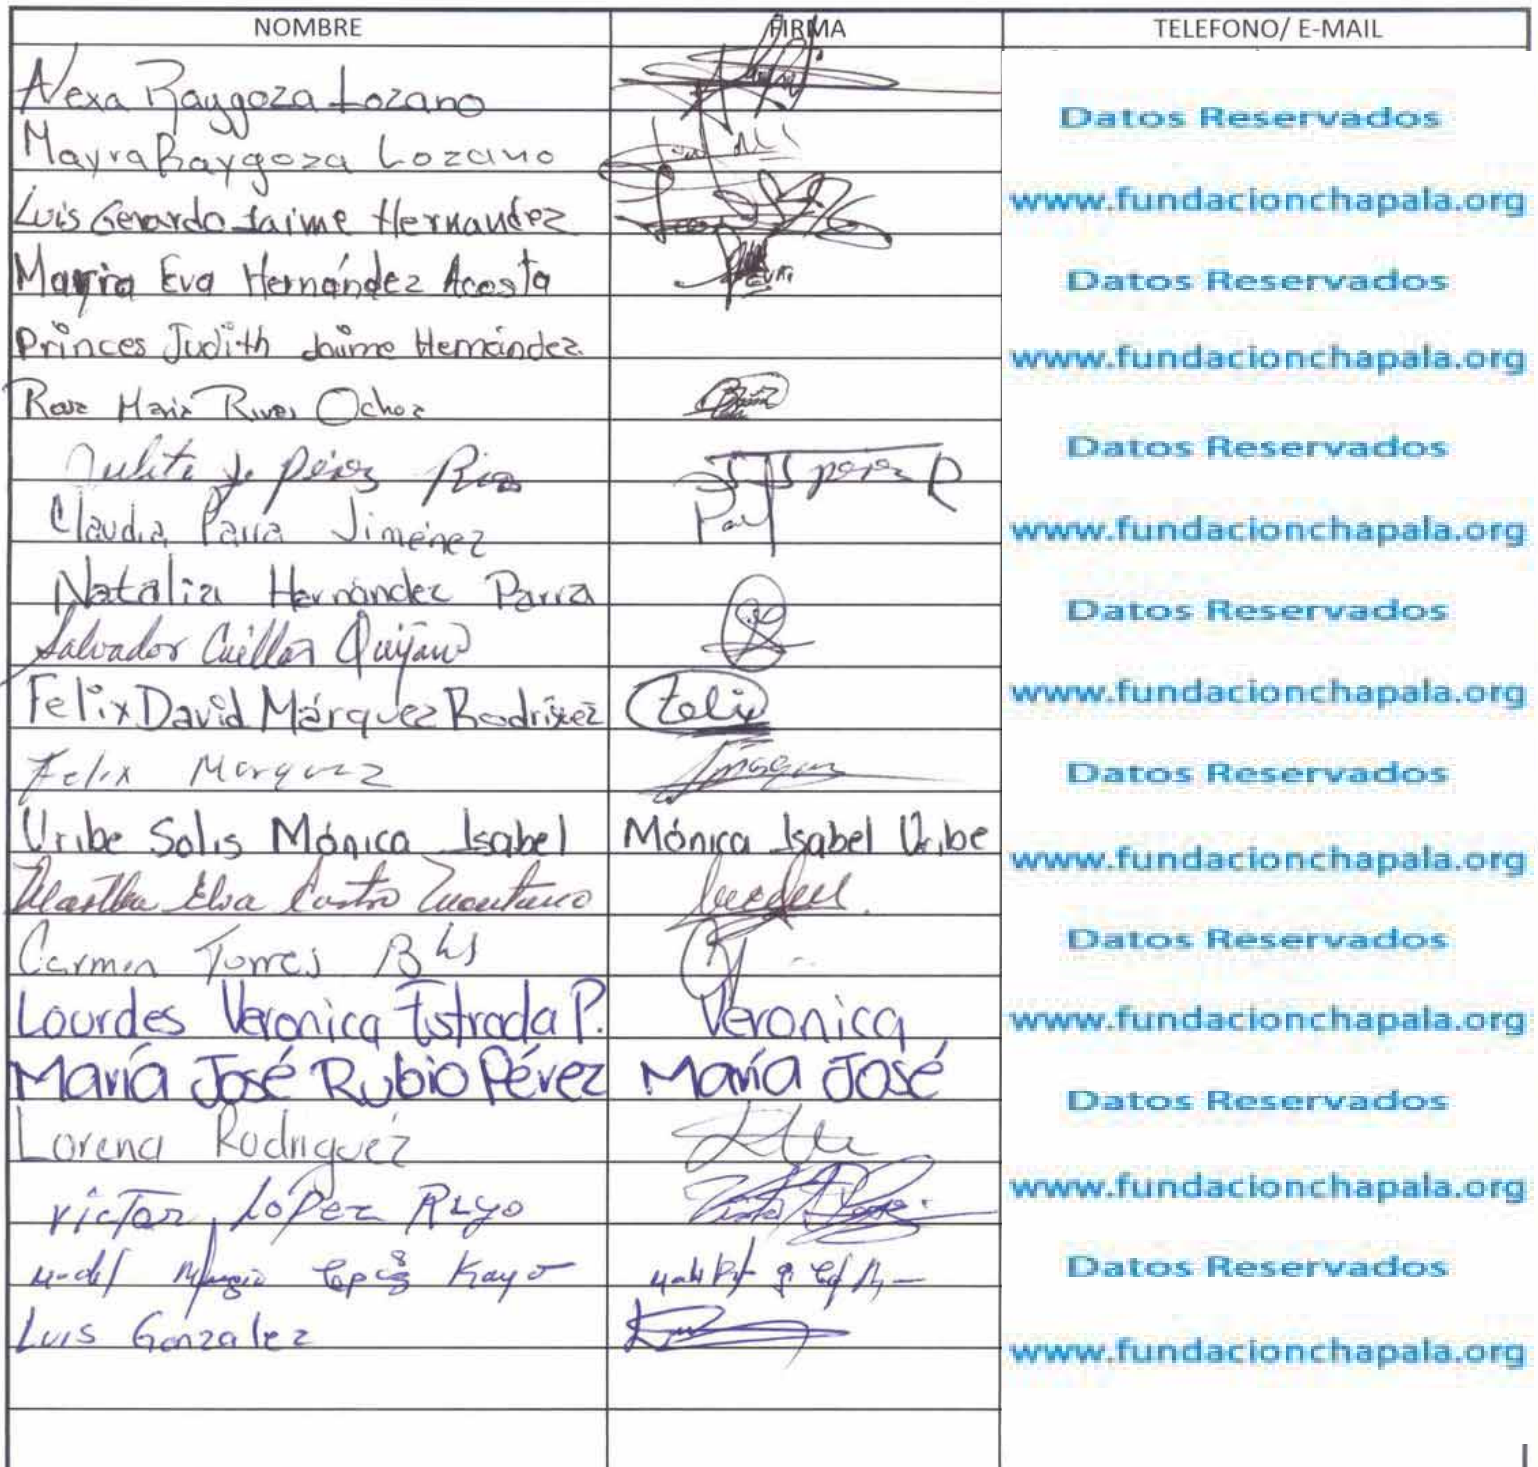 NOMBRE FIRMA TELEFONO/ E-MAIL
Alexa Raygoza Lozano
Datos Reservados
Mayra Raygoza Lozano
www.fundacionchapala.org
Luis Gerardo Jaime Hernandez
Mayra Eva Hernández Acosta
Datos Reservados
Princes Judith Jaime Hernández
www.fundacionchapala.org
Rosa Maria Rivas Ochoa
Datos Reservados
Julita J. Pérez Rios
Claudia Parra Jiménez
www.fundacionchapala.org
Natalia Hernández Parra
Datos Reservados
Salvador Cuillar Quijano
Felix David Márquez Rodriguez Felix
www.fundacionchapala.org
Felix Marquez
Datos Reservados
Uribe Solis Mónica Isabel Mónica Isabel Uribe
www.fundacionchapala.org
Martha Elva Castro
Carmen Torres
Datos Reservados
Lourdes Veronica Estrada P. Veronica
www.fundacionchapala.org
María José Rubio Pérez María José
Datos Reservados
Lorena Rodriguez
www.fundacionchapala.org
Victor López Rayo
Datos Reservados
Rayo
Luis Gonzalez
www.fundacionchapala.org